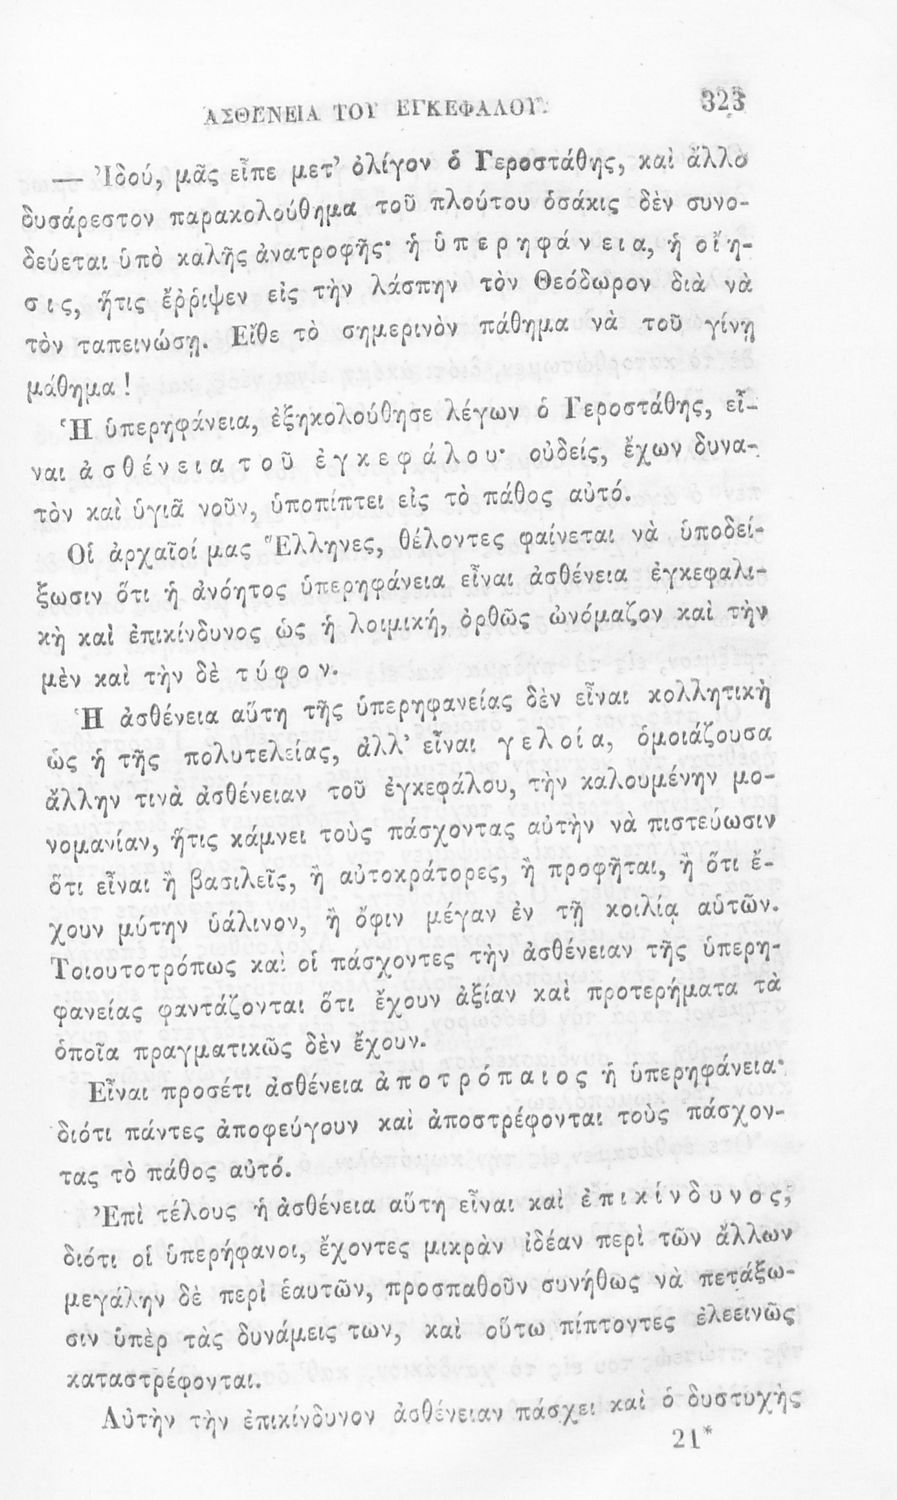 ΑΣΘΕΝΕΙΑ ΤΟΥ ΕΓΚΕΦΑΛΟΥ. 323
— Ἰδού, μᾶς εἶπε μετ’ ὀλίγον ὁ Γεροστάθης, καὶ ἄλλο
δυσάρεστον παρακολούθημα τοῦ πλούτου ὁσάκις δὲν συνο-
δεύεται ὑπὸ καλῆς ἀνατροφῆς· ἡ ὑπερηφάνεια, ἡ οἴη-
σις, ἥτις ἔῤῥιψεν εἰς τὴν λάσπην τὸν Θεόδωρον διὰ νὰ
τὸν ταπεινώσῃ. Εἴθε τὸ σημερινὸν πάθημα νὰ τοῦ γίνῃ
μάθημα!
Ἡ ὑπερηφάνεια, ἐξηκολούθησε λέγων ὁ Γεροστάθης, εἶ-
ναι ἀσθένεια τοῦ ἐγκεφάλου· οὐδείς, ἔχων δυνα-
τὸν καὶ ὑγιᾶ νοῦν, ὑποπίπτει εἰς τὸ πάθος αὐτό.
Οἱ ἀρχαῖοί μας Ἕλληνες, θέλοντες φαίνεται νὰ ὑποδεί-
ξωσιν ὅτι ἡ ἀνόητος ὑπερηφάνεια εἶναι ἀσθένεια ἐγκεφαλι-
κὴ καὶ ἐπικίνδυνος ὡς ἡ λοιμική, ὀρθῶς ὠνόμαζον καὶ τὴν
μὲν καὶ τὴν δὲ τύφον.
Ἡ ἀσθένεια αὕτη τῆς ὑπερηφανείας δὲν εἶναι κολλητικὴ
ὡς ἡ τῆς πολυτελείας, ἀλλ’ εἶναι γελοία, ὁμοιάζουσα
ἄλλην τινὰ ἀσθένειαν τοῦ ἐγκεφάλου, τὴν καλουμένην μο-
νομανίαν, ἥτις κάμνει τοὺς πάσχοντας αὐτὴν νὰ πιστεύωσιν
ὅτι εἶναι ἢ βασιλεῖς, ἢ αὐτοκράτορες, ἢ προφῆται, ἢ ὅτι ἔ-
χουν μύτην ὑάλινον, ἢ ὄφιν μέγαν ἐν τῇ κοιλίᾳ αὑτῶν.
Τοιουτοτρόπως καὶ οἱ πάσχοντες τὴν ἀσθένειαν τῆς ὑπερη-
φανείας φαντάζονται ὅτι ἔχουν ἀξίαν καὶ προτερήματα τὰ
ὁποῖα πραγματικῶς δὲν ἔχουν.
Εἶναι προσέτι ἀσθένεια ἀποτρόπαιος ἡ ὑπερηφάνεια·
διότι πάντες ἀποφεύγουν καὶ ἀποστρέφονται τοὺς πάσχον-
τας τὸ πάθος αὐτό.
Ἐπὶ τέλους ἡ ἀσθένεια αὕτη εἶναι καὶ ἐπικίνδυνος,
διότι οἱ ὑπερήφανοι, ἔχοντες μικρὰν ἰδέαν περὶ τῶν ἄλλων
μεγάλην δὲ περὶ ἑαυτῶν, προσπαθοῦν συνήθως νὰ πετάξω-
σιν ὑπὲρ τὰς δυνάμεις των, καὶ οὕτω πίπτοντες ἐλεεινῶς
καταστρέφονται.
Αὐτὴν τὴν ἐπικίνδυνον ἀσθένειαν πάσχει καὶ ὁ δυστυχὴς
21*